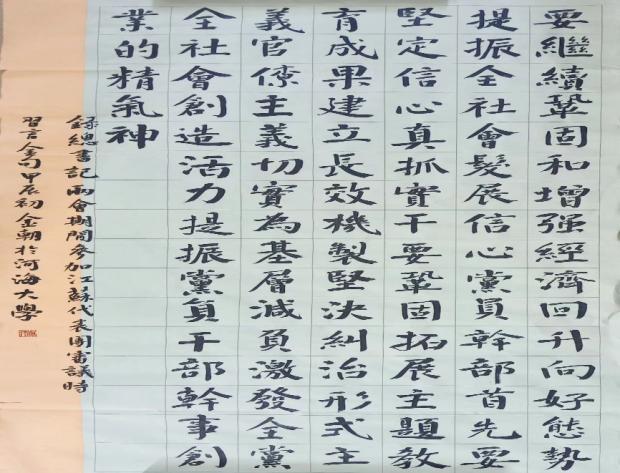 要繼續鞏固和增强經濟回升向好態勢
提振全社會髮展信心黨員幹部首先要
堅定信心真抓實干要鞏固拓展主題教
育成果建立長效機製堅決糾治形式主
義官僚主義切實為基層減負激發全黨
全社會創造活力提振黨員干部幹事創
業的精氣神
錄總書記兩會期間參加江蘇代表團審議時
習言金句甲辰初金朝於河海大學